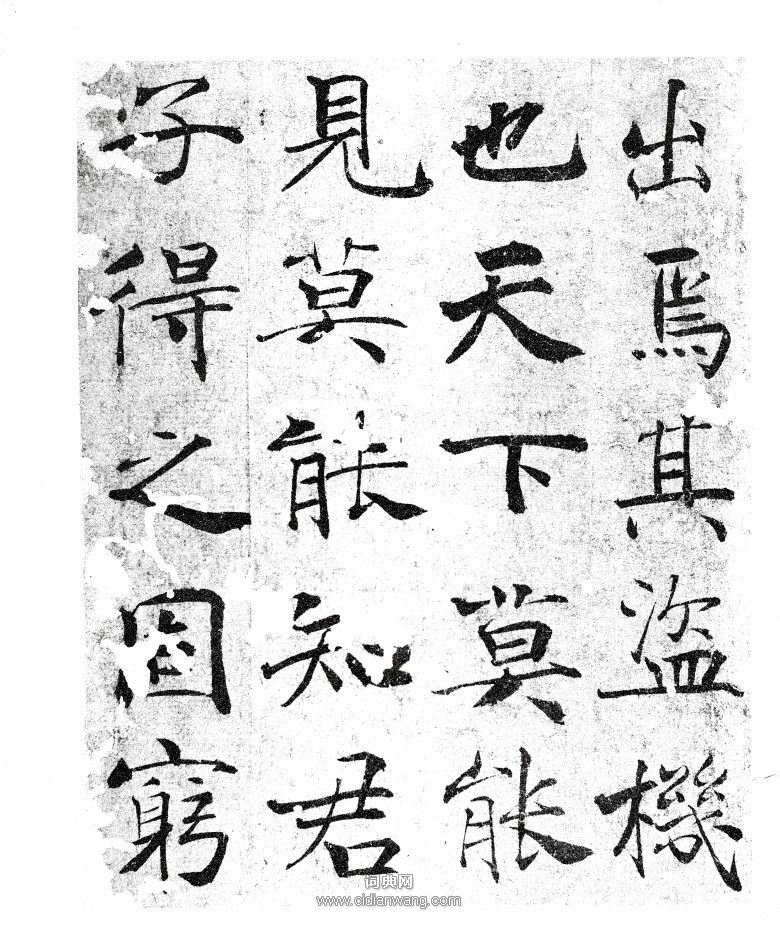 出焉其盜機
也天下莫能
見莫能知君
子得之固窮
词典网
www.cidianwang.com